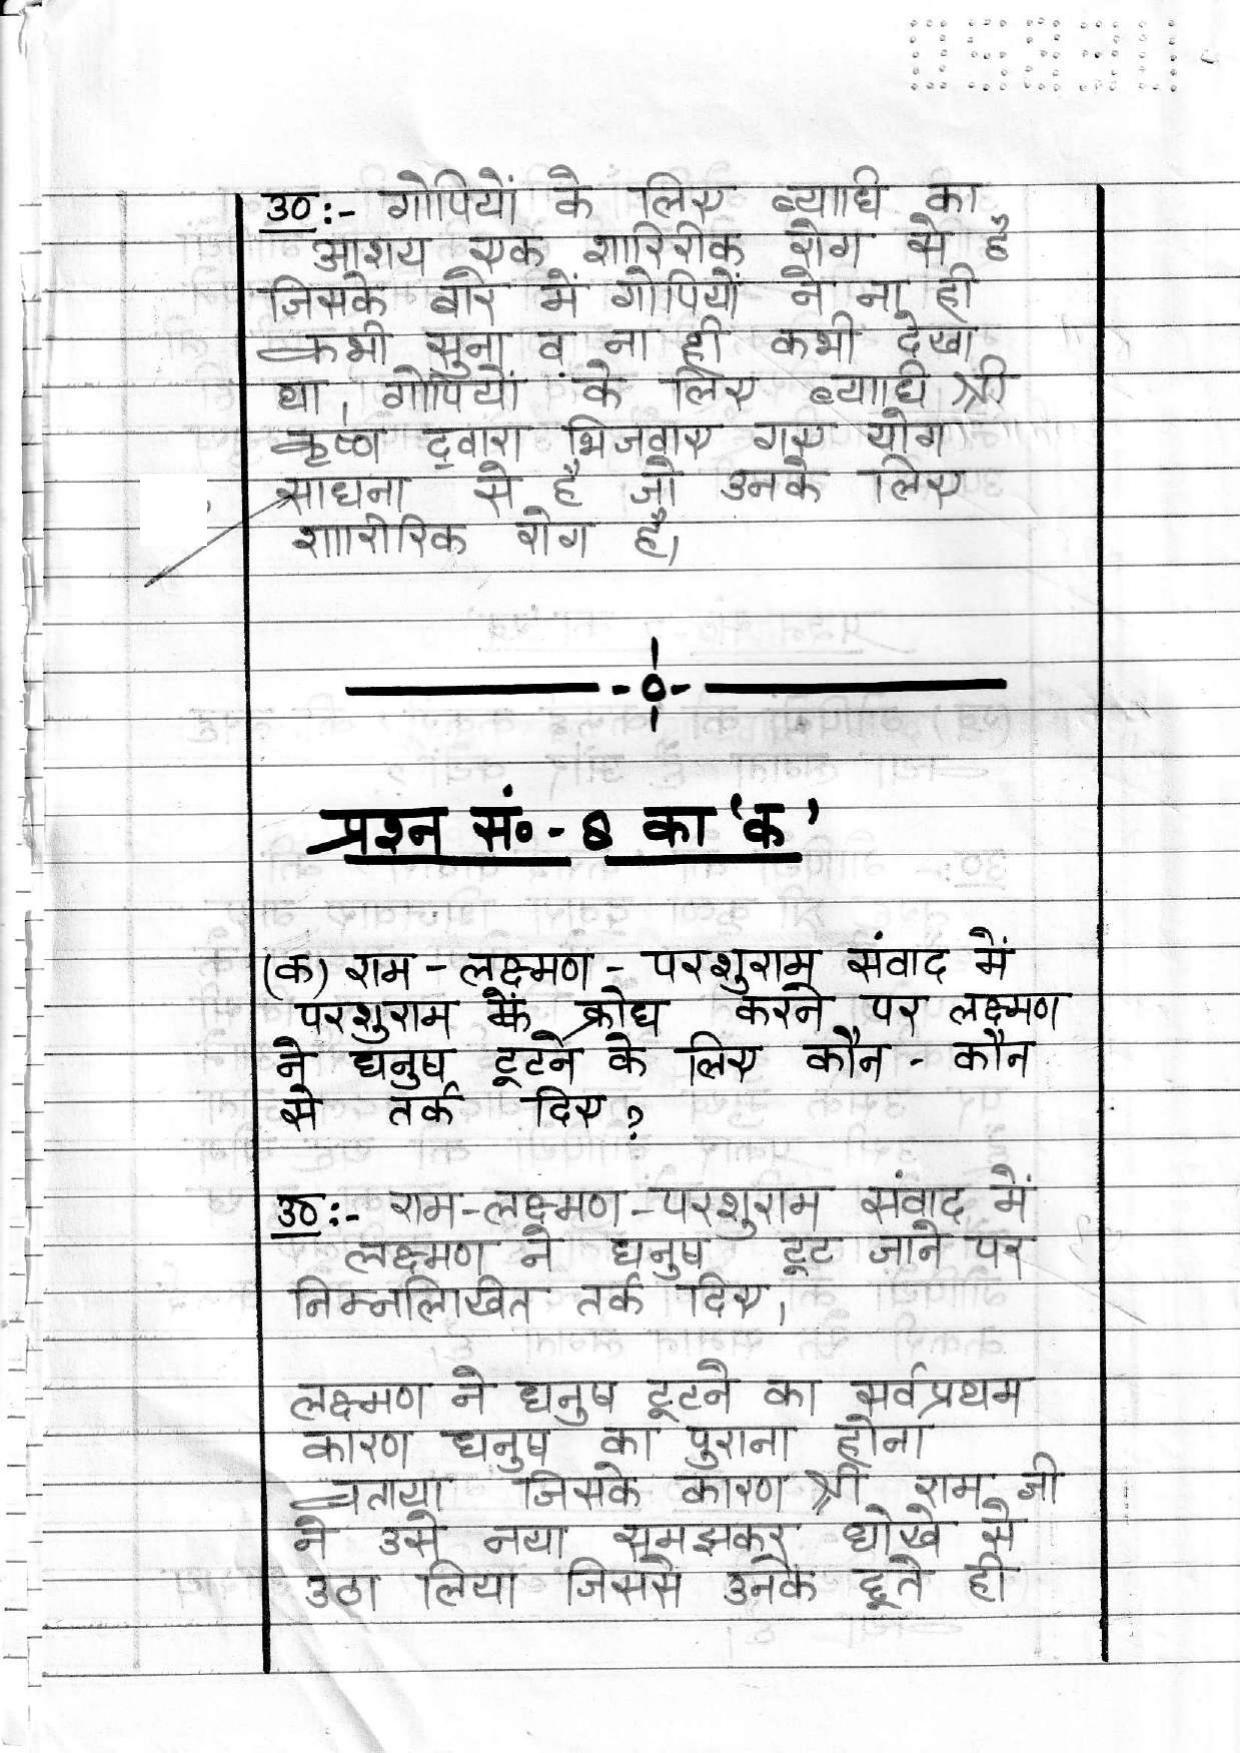 उ०:- गोपियों के लिए व्याधि का
आशय एक शारिरीक रोग से है
जिसके बारे में गोपियों ने ना ही
कभी सुना व ना ही कभी देखा
था। गोपियों के लिए व्याधि श्री
कृष्ण द्वारा भिजवाए गए योग
साधना से है जो उनके लिए
शारीरिक रोग है।
-०-
प्रश्न सं०- 8 का 'क'
(क) राम - लक्ष्मण - परशुराम संवाद में
परशुराम के क्रोध करने पर लक्ष्मण
ने धनुष टूटने के लिए कौन - कौन
से तर्क दिए?
उ०:- राम-लक्ष्मण-परशुराम संवाद में
लक्ष्मण ने धनुष टूट जाने पर
निम्नलिखित तर्क दिए।
लक्ष्मण ने धनुष टूटने का सर्वप्रथम
कारण धनुष का पुराना होना
बताया जिसके कारण श्री राम जी
ने उसे नया समझकर धोखे से
उठा लिया जिससे उनके छूते ही